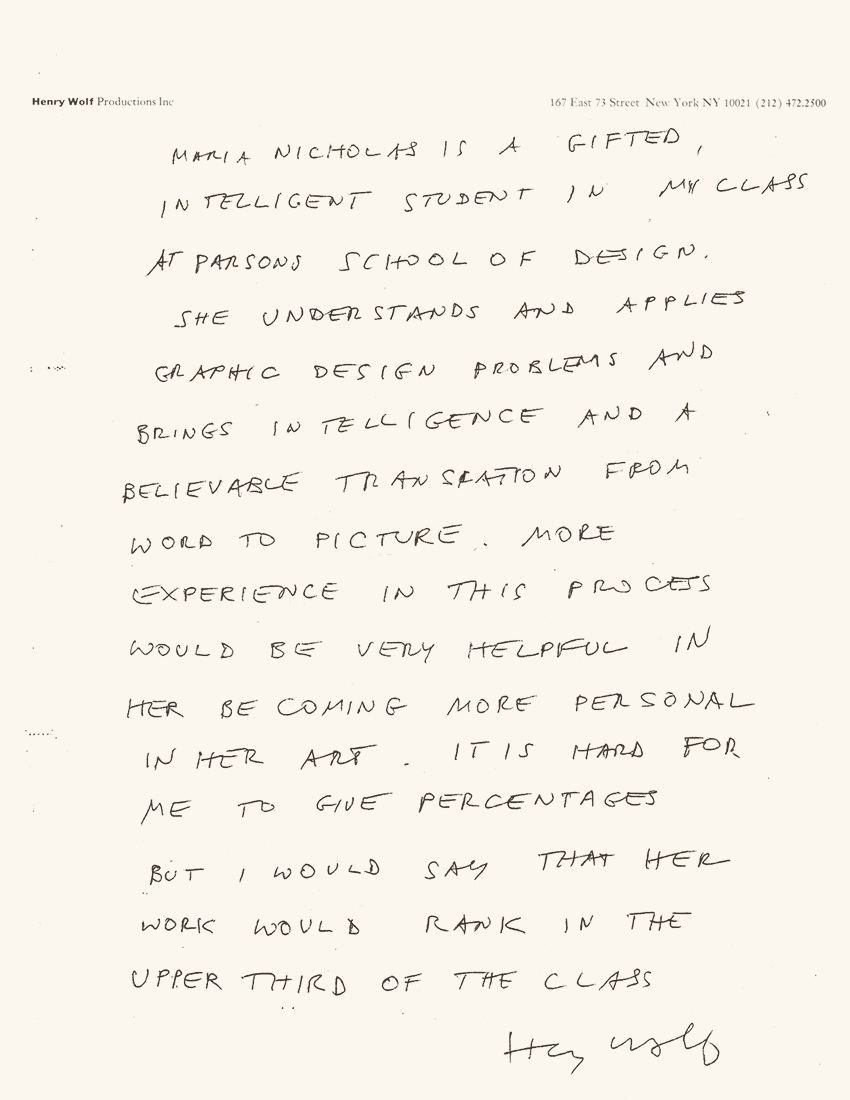 Henry Wolf Productions Inc 167 East 73 Street New York NY 10021 (212) 472.2500
MARIA NICHOLAS IS A GIFTED,
INTELLIGENT STUDENT IN MY CLASS
AT PARSONS SCHOOL OF DESIGN.
SHE UNDERSTANDS AND APPLIES
GRAPHIC DESIGN PROBLEMS AND
BRINGS INTELLIGENCE AND A
BELIEVABLE TRANSLATION FROM
WORD TO PICTURE. MORE
EXPERIENCE IN THIS PROCESS
WOULD BE VERY HELPFUL IN
HER BECOMING MORE PERSONAL
IN HER ART. IT IS HARD FOR
ME TO GIVE PERCENTAGES
BUT I WOULD SAY THAT HER
WORK WOULD RANK IN THE
UPPER THIRD OF THE CLASS
Henry Wolf